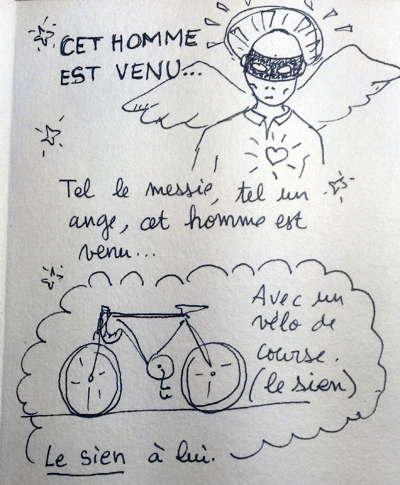 CET HOMME
EST VENU...
Tel le messie, tel un
ange, cet homme est
venu...
Avec un
vélo de
course.
(le sien)
Le sien à lui.